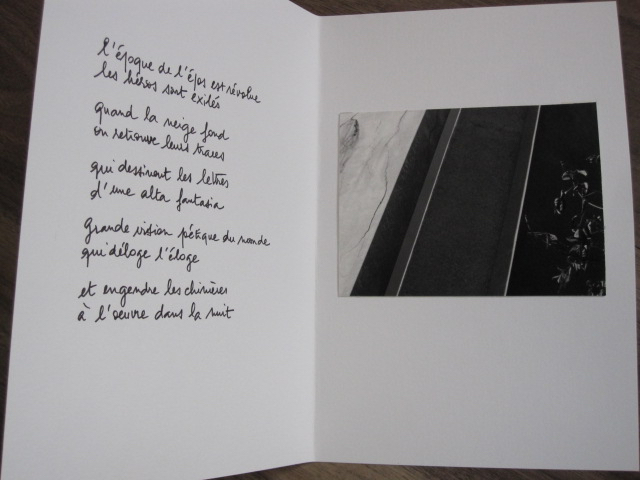 l'époque de l'épos est révolue
les héros sont exilés
quand la neige fond
on retrouve leurs traces
qui dessinent les lettres
d'une alta fantasia
grande vision poétique du monde
qui déloge l'éloge
et engendre les chimères
à l'oeuvre dans la nuit